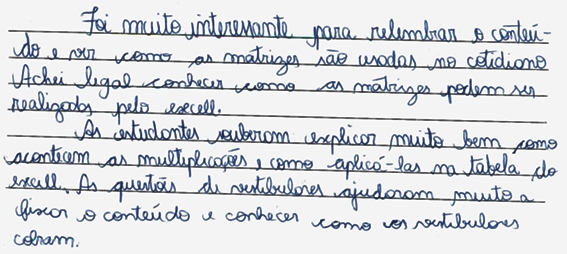 Foi muito interessante para relembrar o conteú-
do e ver como as matrizes são usadas no cotidiano
Achei legal conhecer como as matrizes podem ser
realizados pelo excell.
As estudantes souberam explicar muito bem como
acontecem as multiplicações e como aplicá-las na tabela do
excell. As questões de vestibulares ajudaram muito a
fixar o conteúdo e conhecer como os vestibulares
cobram.